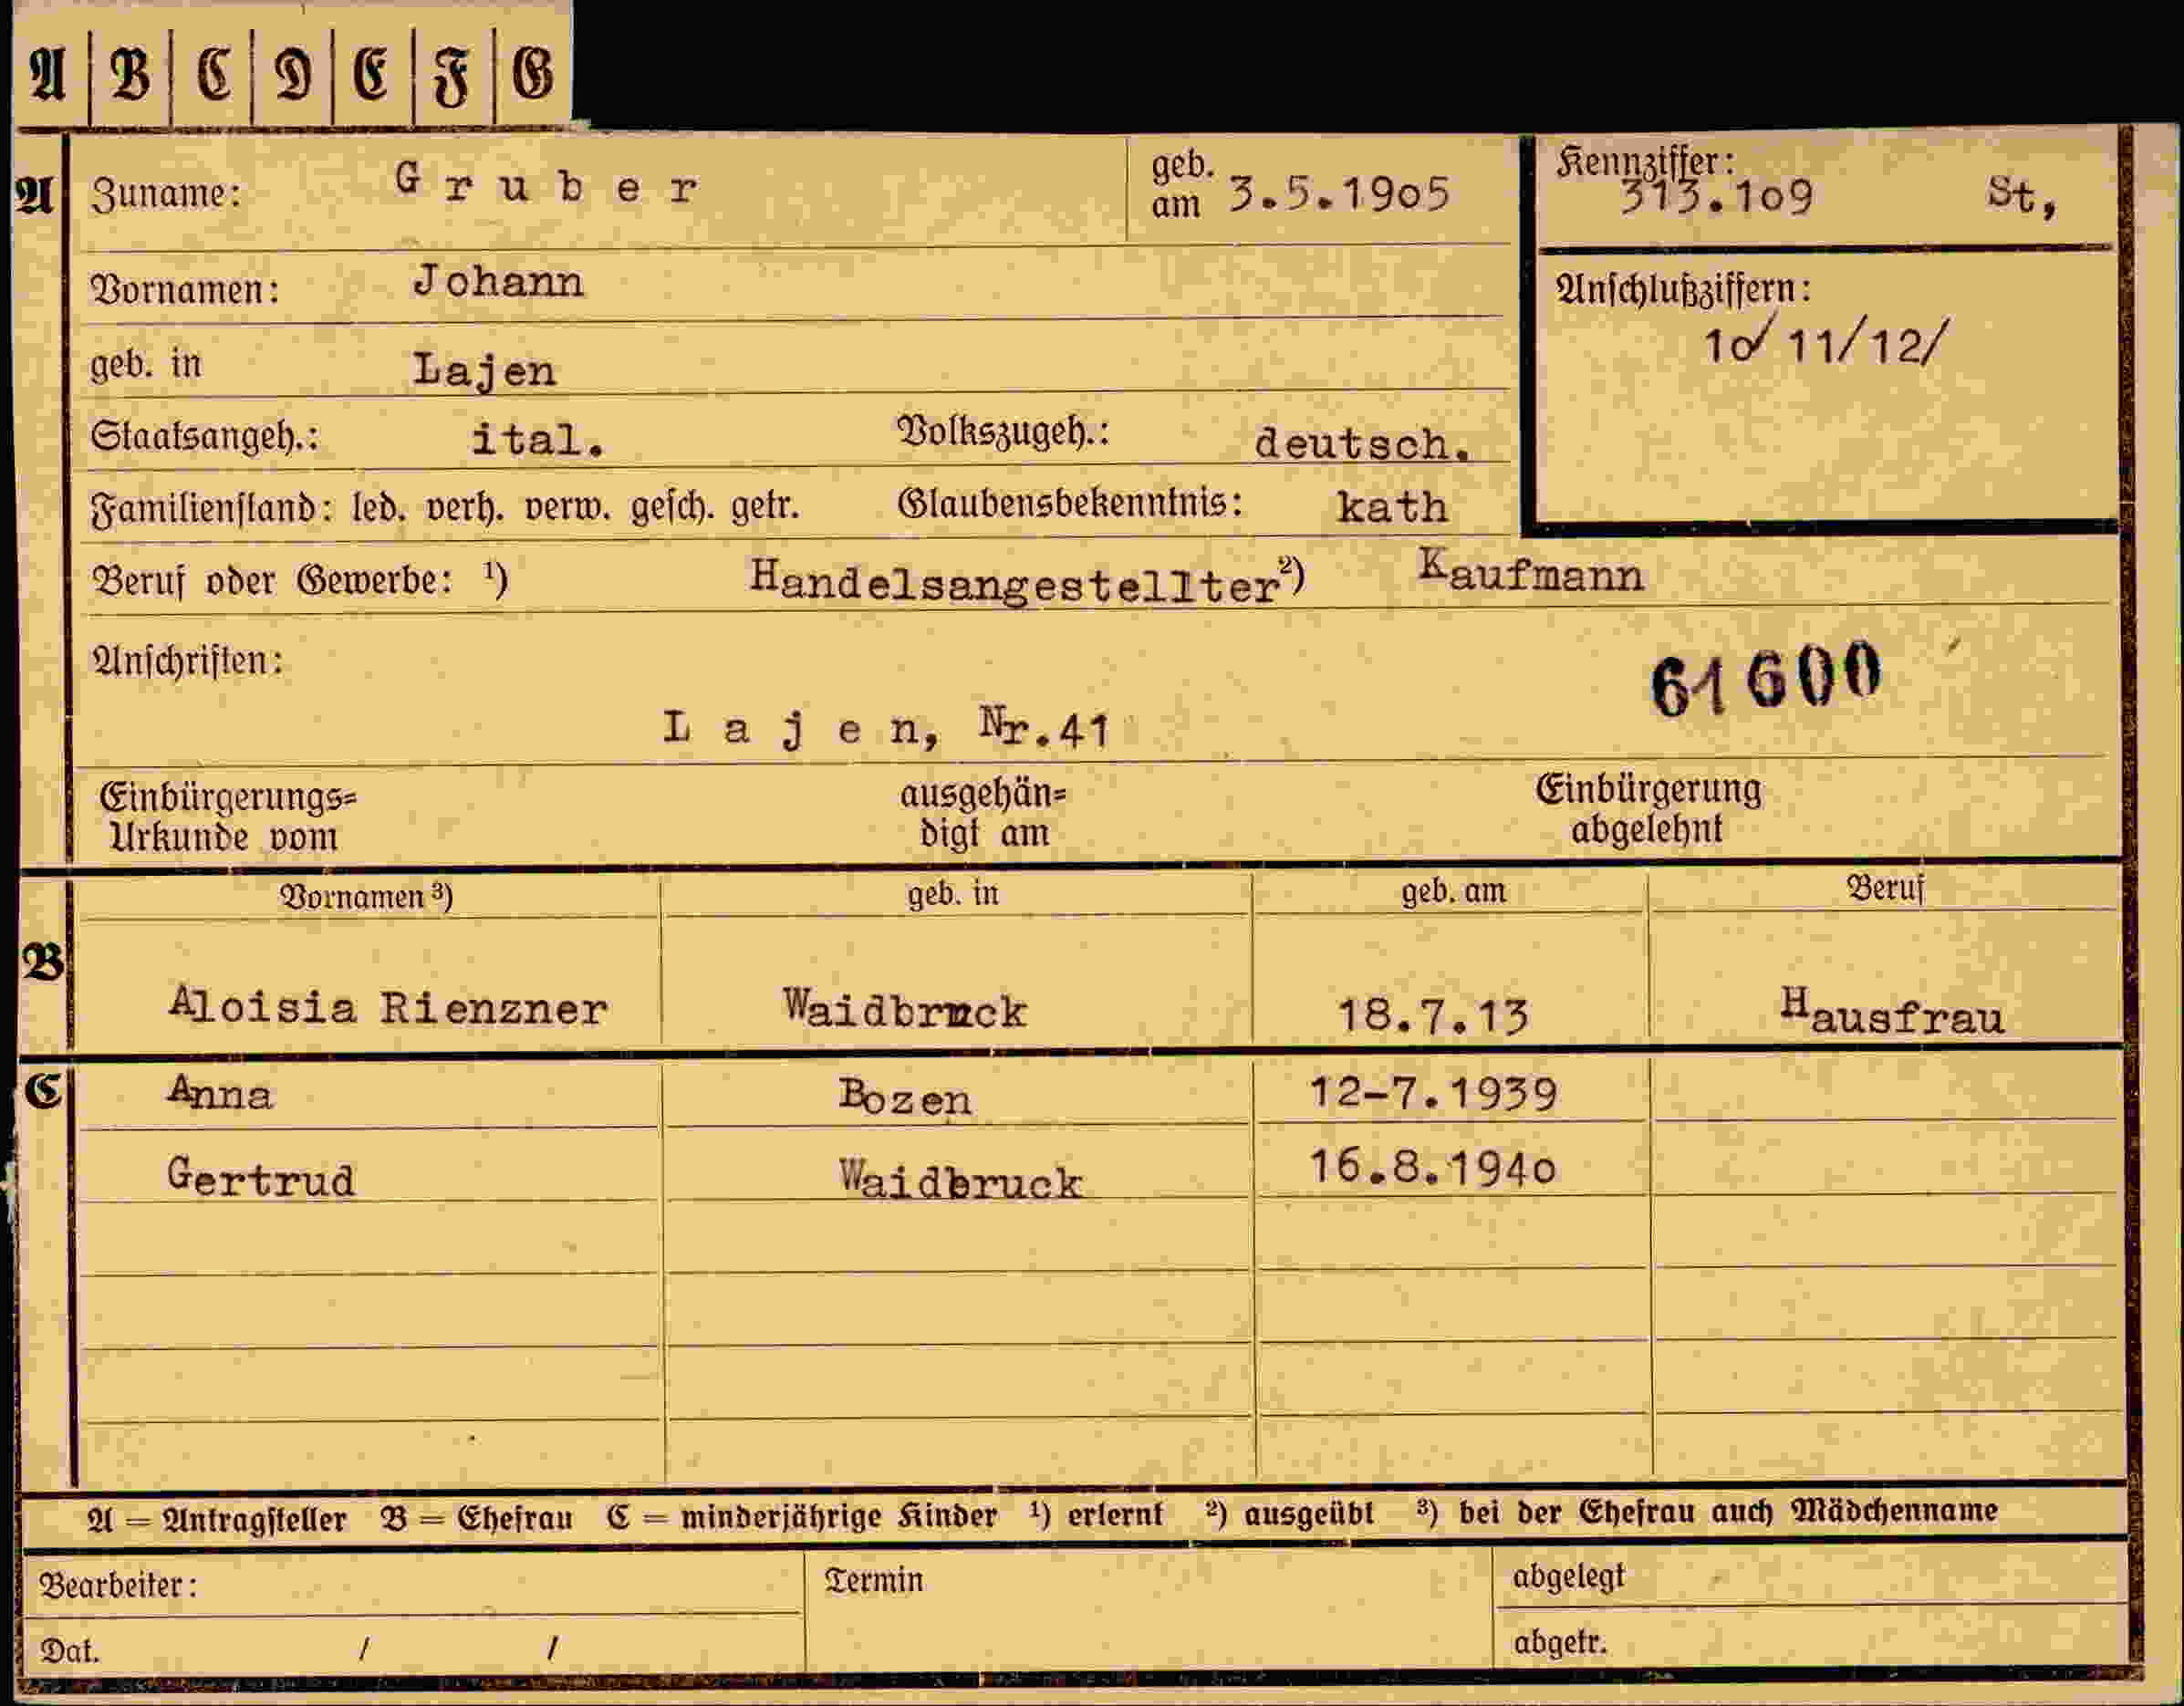 A B C D E F G
A Zuname: Gruber geb. am 3.5.1905 Kennziffer: 313.109 St,
Vornamen: Johann Anschlußziffern:
10/ 11/12/
geb. in Lajen
Staatsangeh.: ital. Volkszugeh.: deutsch.
Familienstand: led. verh. verw. gesch. getr. Glaubensbekenntnis: kath
Beruf oder Gewerbe: ¹) Handelsangestellter ²) Kaufmann
Anschriften: 61600
Lajen, Nr.41
Einbürgerungs= ausgehän= Einbürgerung
Urkunde vom digt am abgelehnt
Vornamen ³) geb. in geb. am Beruf
B
Aloisia Rienzner Waidbruck 18.7.13 Hausfrau
C Anna Bozen 12-7.1939
Gertrud Waidbruck 16.8.1940
A = Antragsteller B = Ehefrau C = minderjährige Kinder ¹) erlernt ²) ausgeübt ³) bei der Ehefrau auch Mädchenname
Bearbeiter: Termin abgelegt
Dat. / / abgetr.